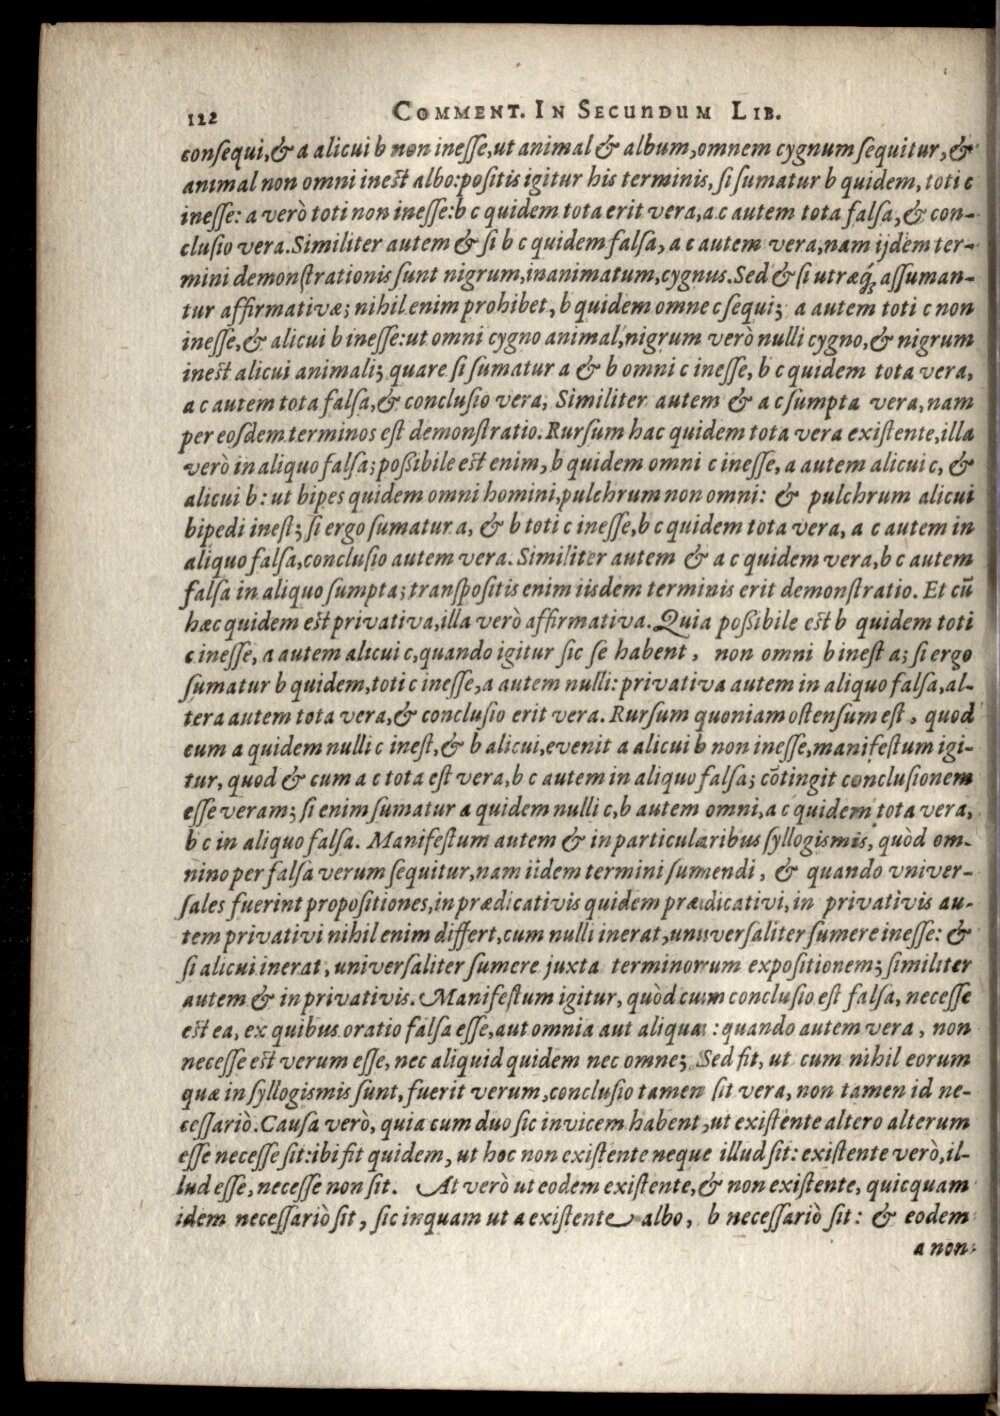 122 COMMENT. IN SECUNDUM LIB.
consequi,& a alicui b non inesse,ut animal & album,omnem cygnum sequitur,&
animal non omni inest albo:positis igitur his terminis, si sumatur b quidem, toti c
inesse: a verò toti non inesse:b c quidem tota erit vera,a c autem tota falsa,& con-
clusio vera.Similiter autem & si b c quidem falsa, a c autem vera,nam ijdem ter-
mini demonstrationis sunt nigrum,inanimatum,cygnus.Sed & si utræq́; assuman-
tur affirmativæ; nihil enim prohibet, b quidem omne c sequi; a autem toti c non
inesse,& alicui b inesse:ut omni cygno animal,nigrum verò nulli cygno,& nigrum
inest alicui animali; quare si sumatur a & b omni c inesse, b c quidem tota vera,
a c autem tota falsa,& conclusio vera; Similiter autem & a c sumpta vera,nam
per eosdem terminos est demonstratio.Rursum hac quidem tota vera existente,illa
verò in aliquo falsa;poßibile est enim, b quidem omni c inesse, a autem alicui c, &
alicui b: ut bipes quidem omni homini,pulchrum non omni: & pulchrum alicui
bipedi inest; si ergo sumatur a, & b toti c inesse,b c quidem tota vera, a c autem in
aliquo falsa,conclusio autem vera. Similiter autem & a c quidem vera,b c autem
falsa in aliquo sumpta;transpositis enim iisdem terminis erit demonstratio. Et cū
hæc quidem est privativa,illa verò affirmativa.Quia poßibile est b quidem toti
c inesse, a autem alicui c,quando igitur sic se habent, non omni b inest a; si ergo
sumatur b quidem,toti c inesse,a autem nulli: privativa autem in aliquo falsa,al-
tera autem tota vera,& conclusio erit vera. Rursum quoniam ostensum est, quod
cum a quidem nulli c inest,& b alicui,evenit a alicui b non inesse,manifestum igi-
tur, quod & cum a c tota est vera,b c autem in aliquo falsa; cōtingit conclusionem
esse veram; si enim sumatur a quidem nulli c,b autem omni,a c quidem tota vera,
b c in aliquo falsa. Manifestum autem & in particularibus syllogismis, quòd om-
nino per falsa verum sequitur,nam iidem termini sumendi, & quando vniver-
sales fuerint propositiones,in prædicativis quidem prædicativi,in privativis au-
tem privativi nihil enim differt,cum nulli inerat,universaliter sumere inesse: &
si alicui inerat, universaliter sumere juxta terminorum expositionem; similiter
autem & in privativis. Manifestum igitur, quòd cum conclusio est falsa, necesse
est ea, ex quibus oratio falsa esse,aut omnia aut aliqua: quando autem vera, non
necesse est verum esse, nec aliquid quidem nec omne; Sed fit, ut cum nihil eorum
quæ in syllogismis sunt, fuerit verum,conclusio tamen sit vera, non tamen id ne-
cessariò.Causa verò, quia cum duo sic invicem habent,ut existente altero alterum
esse necesse sit:ibi fit quidem, ut hoc non existente neque illud sit: existente verò,il-
lud esse, necesse non sit. At verò ut eodem existente,& non existente, quicquam
idem necessariò sit, sic inquam ut a existente albo, b necessariò sit: & eodem
a non